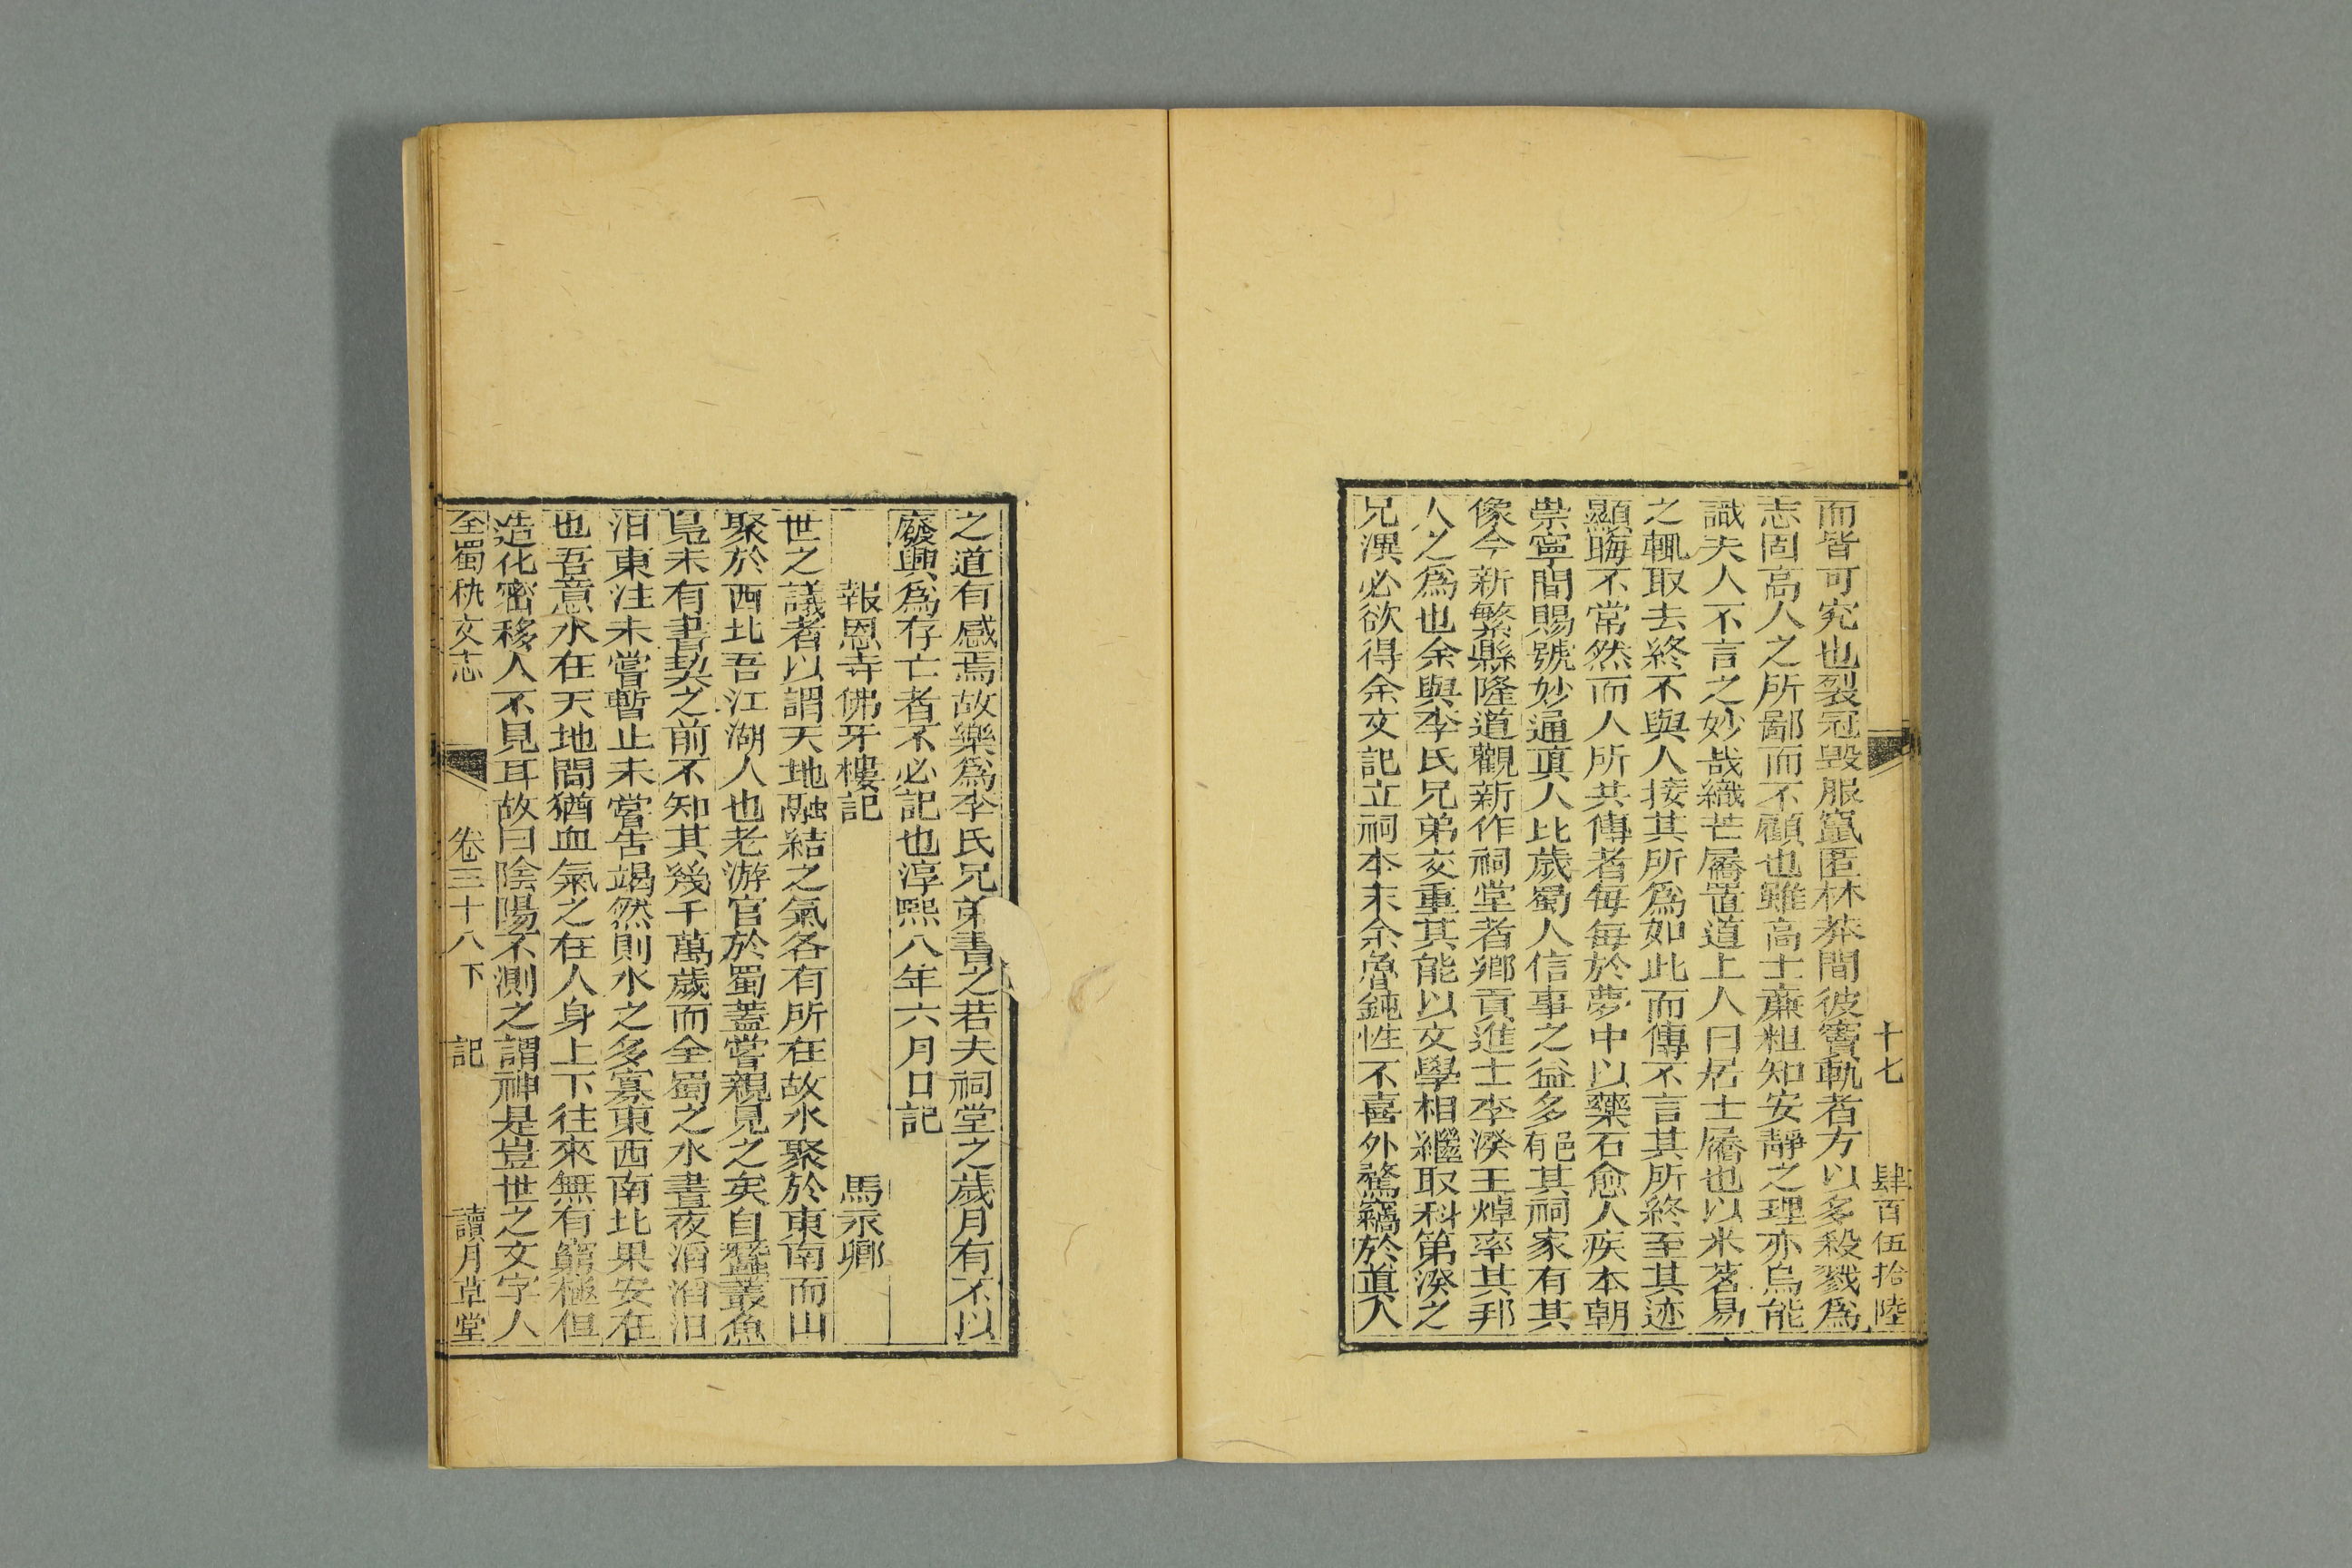 十七 肆百伍拾陸
而皆可究也裂冠毀服竄匿林莽間彼竇軌者方以多殺戮爲
志固高人之所鄙而不顧也雖高士廉粗知安靜之理亦烏能
識夫人不言之妙哉織芒屩置道上人曰居士屩也以米茗易
之輒取去終不與人接其所爲如此而傳不言其所終至其迹
顯晦不常然而人所共傳者每每於夢中以藥石愈人疾本朝
崇寧間賜號妙通眞人比歲蜀人信事之益多郒其祠家有其
像今新繁縣隆道觀新作祠堂者鄉貢進士李㵐王焯率其邦
人之爲也余與李氏兄弟交重其能以文學相繼取科第㵐之
兄潩必欲得余文記立祠本末余魯鈍性不喜外驁竊於眞人
之道有感焉故樂爲李氏兄弟書之若夫祠堂之歲月有不以
廢興爲存亡者不必記也淳熙八年六月日記
報恩寺佛牙樓記 馬永卿
世之議者以謂天地融結之氣各有所在故水聚於東南而山
聚於西北吾江湖人也老游官於蜀蓋嘗親見之矣自蠶叢魚
鳧未有書契之前不知其幾千萬歲而全蜀之水晝夜滔滔汩
汨東注未嘗暫止未嘗告竭然則水之多寡東西南北果安在
也吾意水在天地間猶血氣之在人身上下往來無有窮極但
造化密移人不見耳故曰陰陽不測之謂神是豈世之文字人
全蜀秇文志 卷三十八下 記 讀月草堂